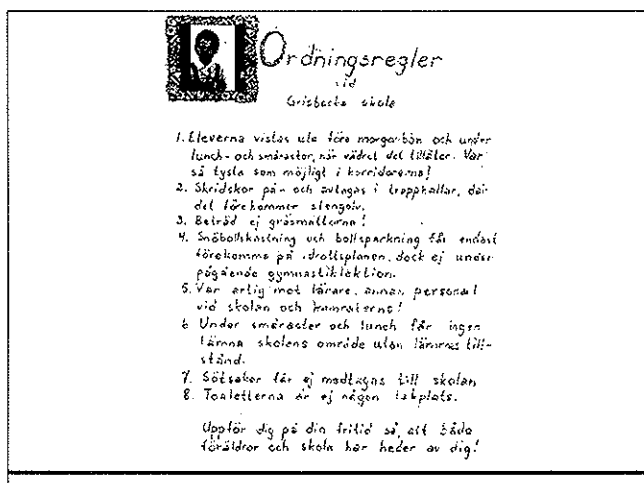 Ordningsregler
vid
Grisbacka skola
1. Eleverna vistas ute före morgonbön och under
lunch- och småraster, när vädret det tillåter. Var
så tysta som möjligt i korridorerna!
2. Skridskor på- och avtagas i trapphallar, där
det förekommer stengolv.
3. Beträd ej gräsmattorna!
4. Snöbollskastning och bollsparkning får endast
förekomma på idrottsplanen, dock ej under
pågående gymnastiklektion.
5. Var artig mot lärare, annan personal
vid skolan och kamraterna!
6 Under småraster och lunch får ingen
lämna skolens område utan lärares till-
stånd.
7. Sötsaker får ej medtagas till skolan
8. Toaletterna är ej någon lekplats.
Uppför dig på din fritid så, att både
föräldrar och skola har heder av dig!